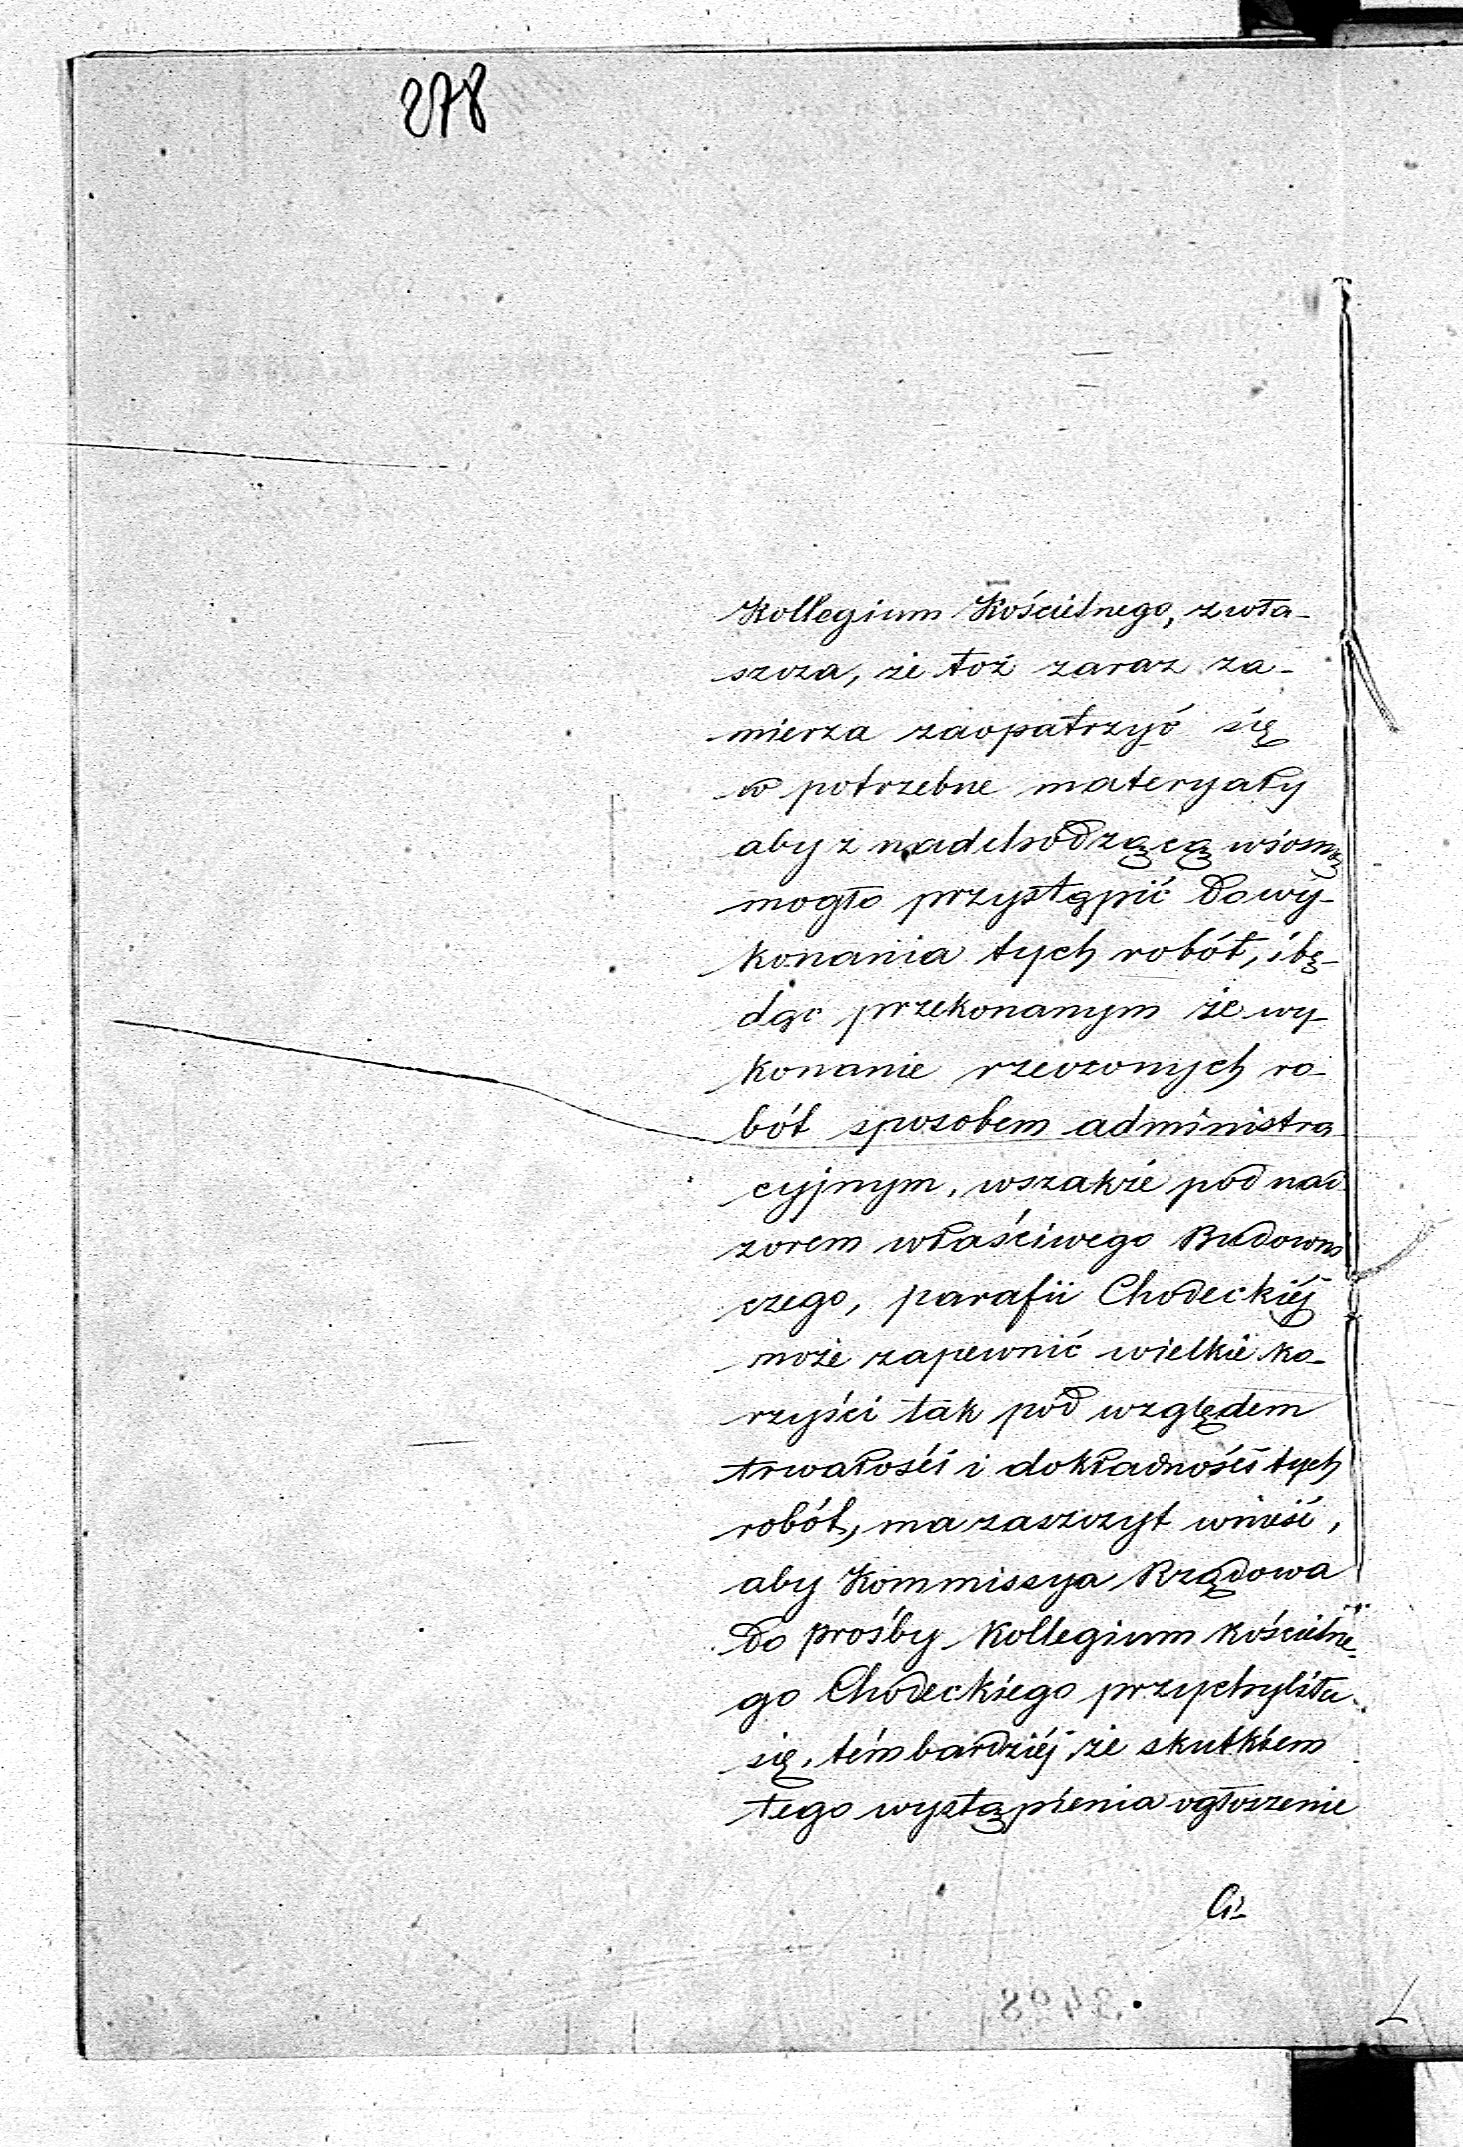 278
Kollegium Kościelnego, zwła-
szcza, że toż zaraz za-
mierza zaopatrzyć się
w potrzebne materyały
aby z nadchodzącą wiosną
mogło przystąpić do wy-
konania tych robót, i bę-
dąc przekonanym że wy-
konanie rzeczonych ro-
bót sposobem administra
cyjnym, wszakże pod nad
zorem właściwego Budowni
czego, parafii Chodeckiéj
może zapewnić wielkie ko-
rzyści tak pod względem
trwałości i dokładności tych
robót, ma zaszczyt wnieść,
aby Kommissya Rządowa
do prośby Kollegium kościelne-
go Chodeckiego przychyliła
się, témbardziéj, że skutkiem
tego wystąpienia ogłoszenie